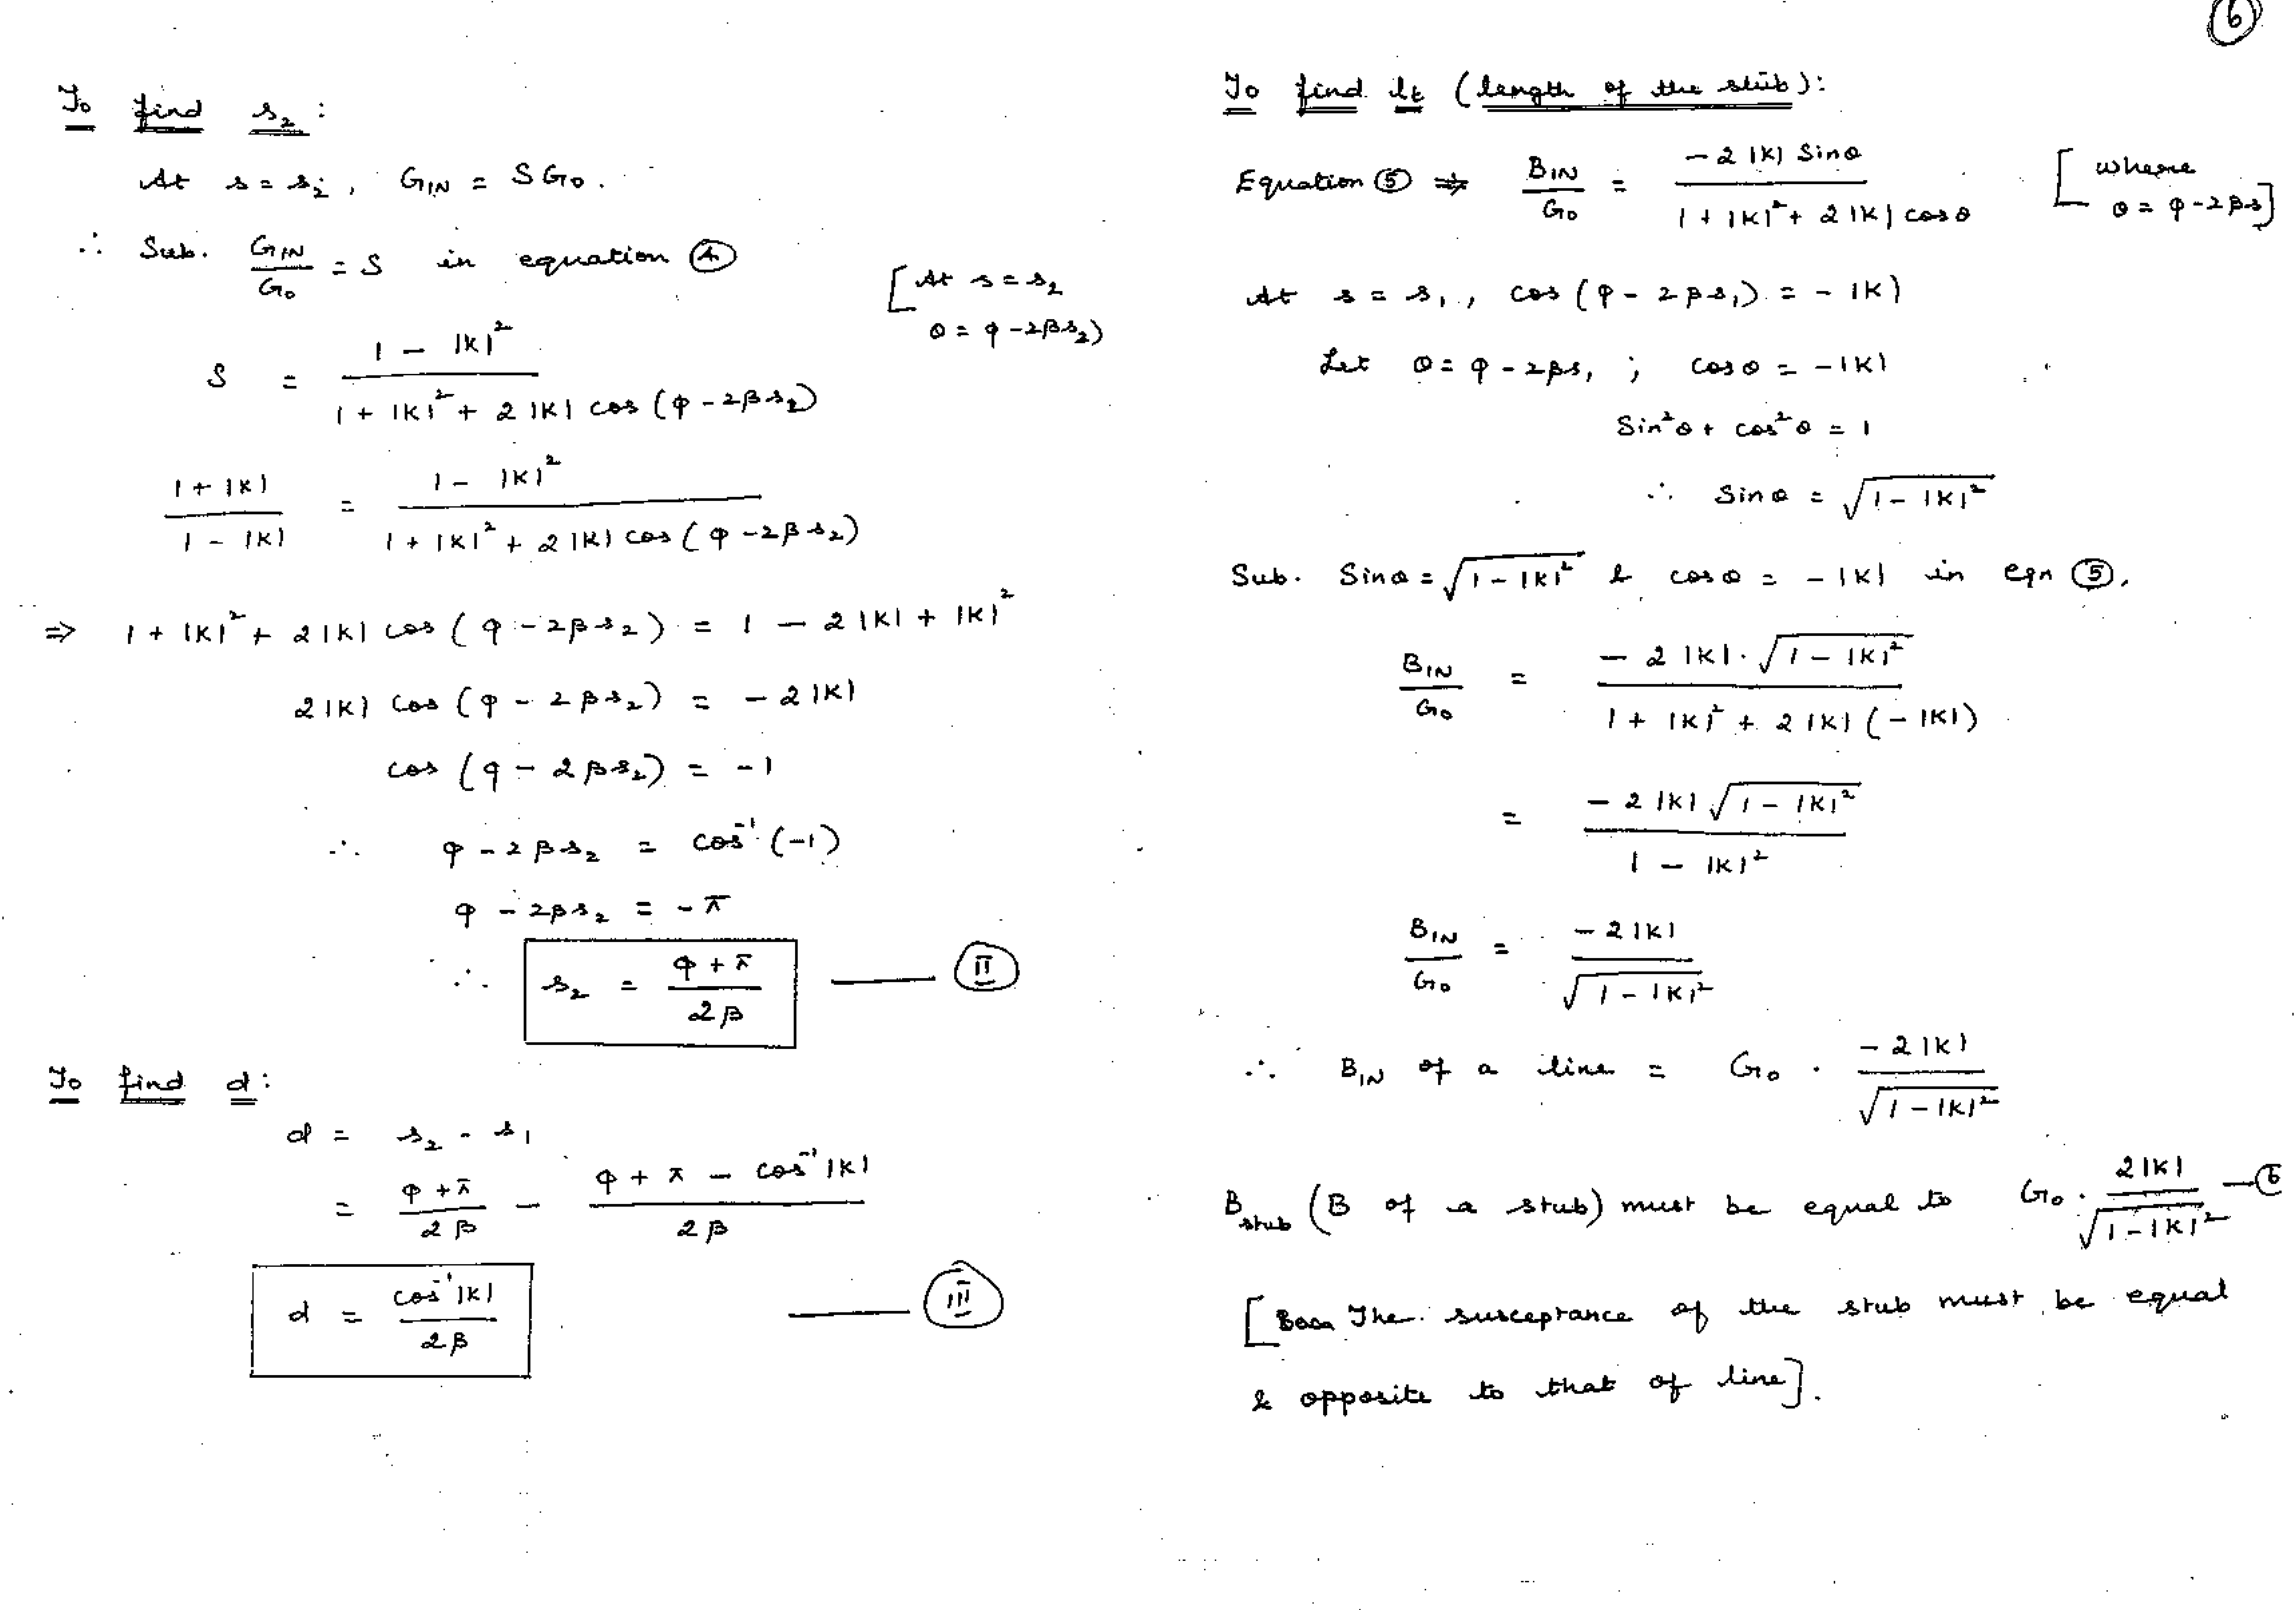 6
To find s₂ :
At s = s₂ , G_IN = S G₀ .
∴ Sub. G_IN/G₀ = S in equation ④
[At s = s₂
θ = φ - 2βs₂)
S = (1 - |K|²) / (1 + |K|² + 2|K| cos (φ - 2βs₂))
(1 + |K|) / (1 - |K|) = (1 - |K|²) / (1 + |K|² + 2|K| cos (φ - 2βs₂))
⇒ 1 + |K|² + 2|K| cos (φ - 2βs₂) = 1 - 2|K| + |K|²
2|K| cos (φ - 2βs₂) = - 2|K|
cos (φ - 2βs₂) = -1
∴ φ - 2βs₂ = cos⁻¹ (-1)
φ - 2βs₂ = -π
∴ s₂ = (φ + π) / 2β — Ⅱ
To find d :
d = s₂ - s₁
= (φ + π) / 2β - (φ + π - cos⁻¹|K|) / 2β
d = cos⁻¹|K| / 2β — Ⅲ
To find lt (length of the stub) :
Equation ⑤ ⇒ B_IN/G₀ = -2|K| Sinθ / (1 + |K|² + 2|K| cosθ) [where
θ = φ - 2βs]
At s = s₁ , cos (φ - 2βs₁) = - |K|
Let θ = φ - 2βs₁ ; cosθ = -|K|
Sin²θ + cos²θ = 1
∴ Sinθ = √(1 - |K|²)
Sub. Sinθ = √(1 - |K|²) & cosθ = -|K| in eqn ⑤.
B_IN/G₀ = - 2|K| . √(1 - |K|²) / (1 + |K|² + 2|K| (-|K|))
= - 2|K| √(1 - |K|²) / (1 - |K|²)
B_IN/G₀ = - 2|K| / √(1 - |K|²)
∴ B_IN of a line = G₀ . - 2|K| / √(1 - |K|²)
B_stub (B of a stub) must be equal to G₀ . 2|K| / √(1 - |K|²) — ⑥
[The susceptance of the stub must be equal
& opposite to that of line].